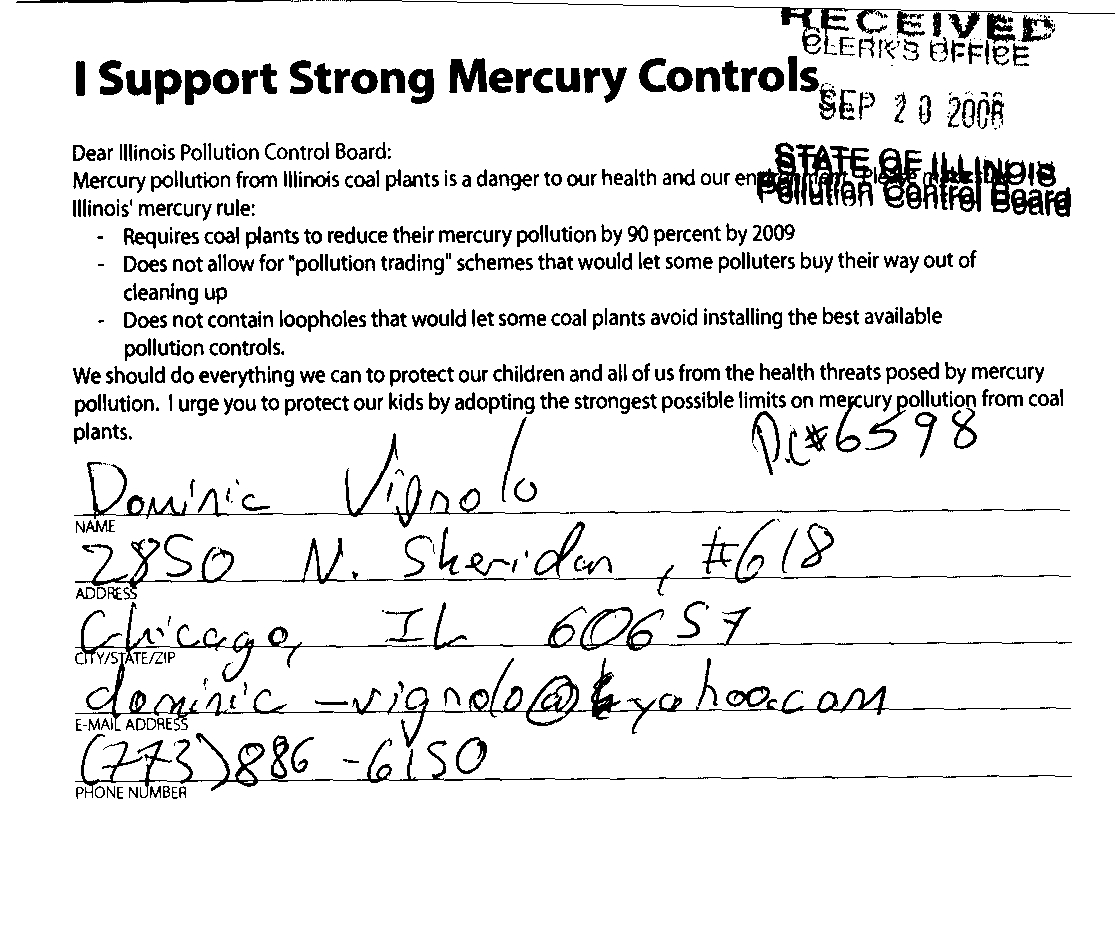 RECEIVED
CLERK'S OFFICE
I Support Strong Mercury Controls
SEP 20 2006
Dear Illinois Pollution Control Board:
STATE OF ILLINOIS
Mercury pollution from Illinois coal plants is a danger to our health and our
Pollution Control Board
Illinois' mercury rule:
- Requires coal plants to reduce their mercury pollution by 90 percent by 2009
- Does not allow for "pollution trading" schemes that would let some polluters buy their way out of
cleaning up
- Does not contain loopholes that would let some coal plants avoid installing the best available
pollution controls.
We should do everything we can to protect our children and all of us from the health threats posed by mercury
pollution. I urge you to protect our kids by adopting the strongest possible limits on mercury pollution from coal
plants.
P.C#6598
Dominic Vignolo
NAME
2850 N. Sheridan, #618
ADDRESS
Chicago, IL 60657
CITY/STATE/ZIP
dominic_vignolo@yahoo.com
E-MAIL ADDRESS
(773)886-6150
PHONE NUMBER